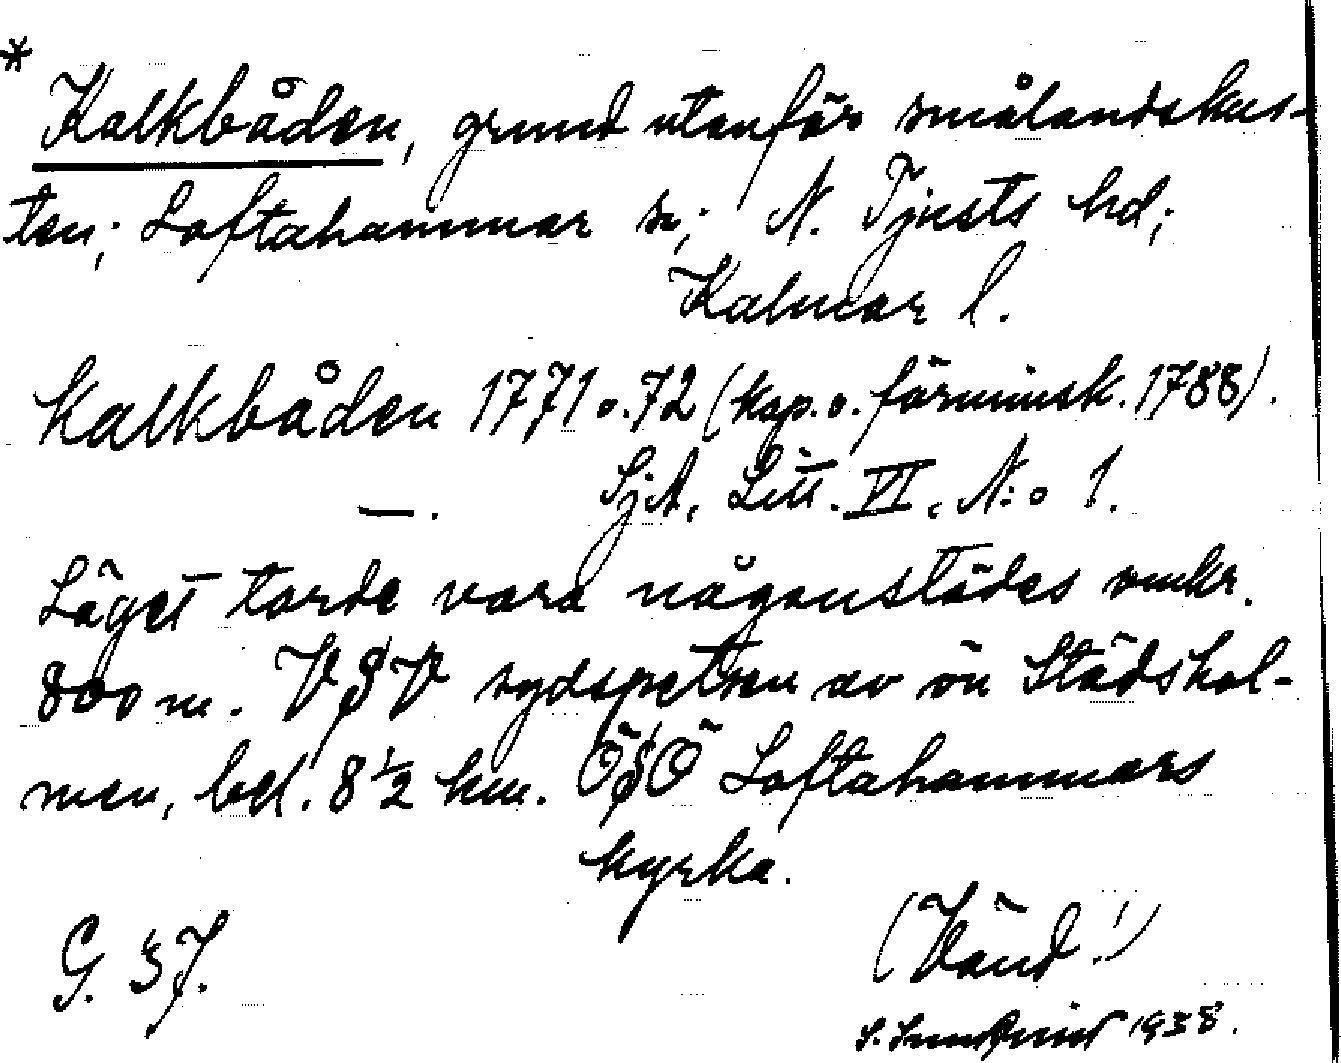 *
Kalkbåden, grund utanför smålandskus-
ten; Loftahammar sn; N. Tjusts hd;
Kalmar l.
Kalkbåden 1771 o. 72 (kop. o. förminsk. 1788).
—. SjA, Litt. VI, N:o 1.
Läget torde vara någonstädes omkr.
800 m. VSV sydspetsen av ön Städshol-
men, bel. 8 1/2 km. ÖSÖ Loftahammars
kyrka.
(Vänd!)
G. 37.
S. 1938.